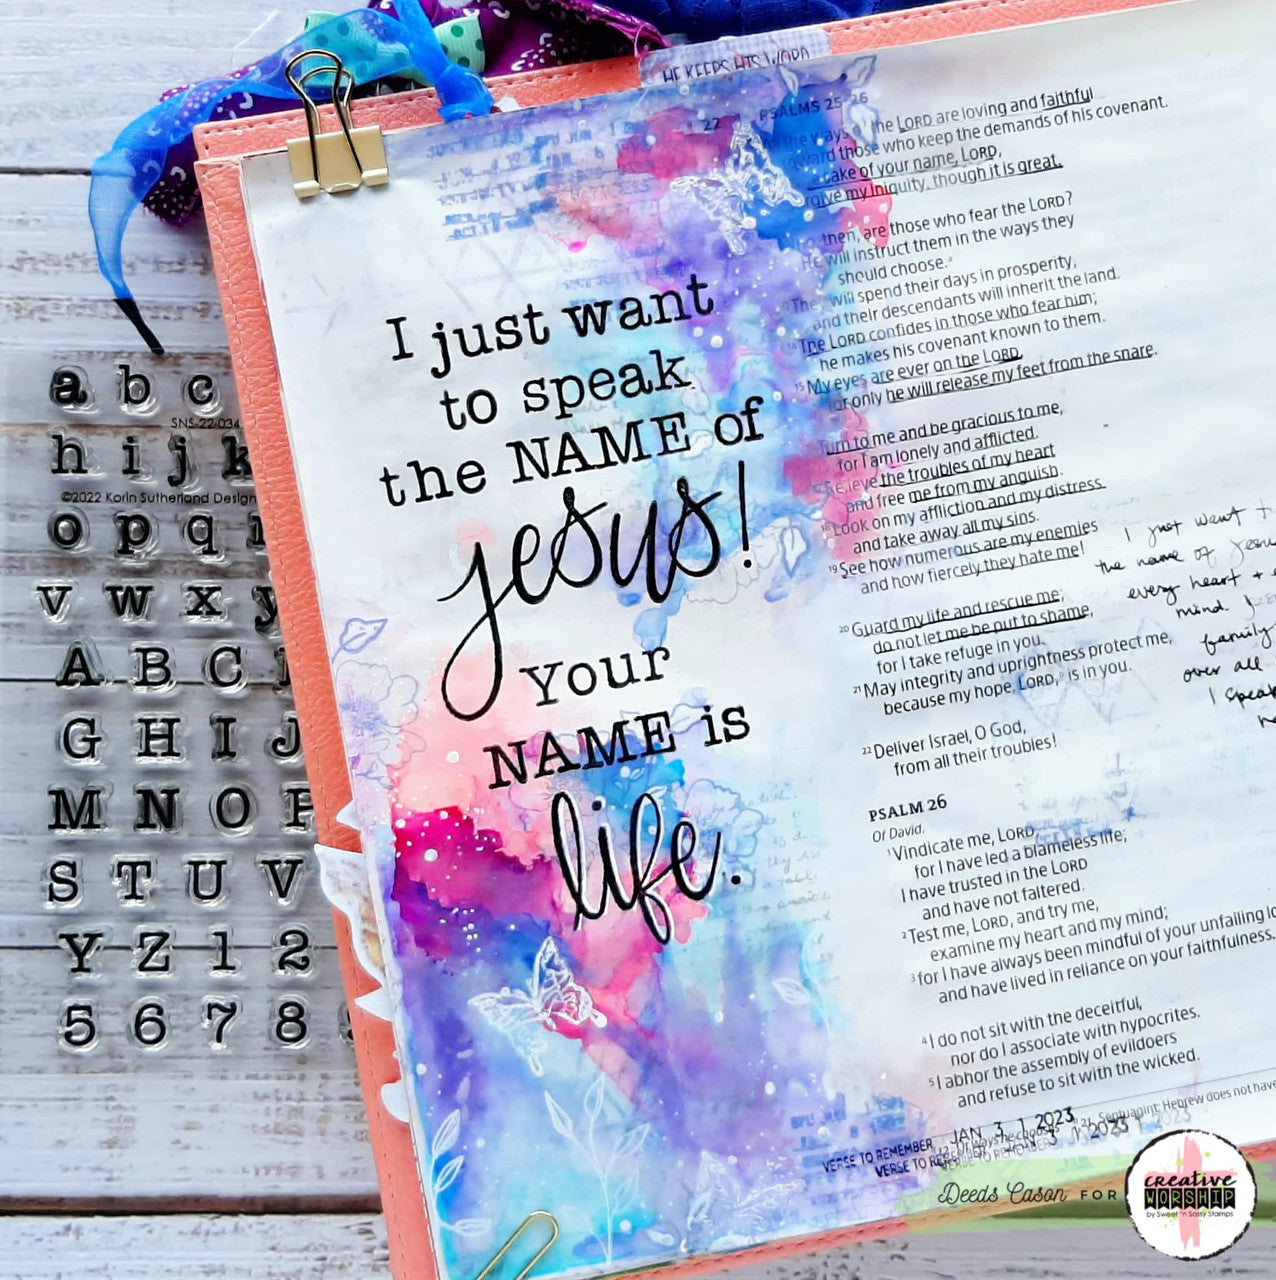 HE KEEPS HIS WORD
22
PSALMS 25 26
the LORD are loving and faithful
those who keep the demands of his covenant.
sake of your name, LORD,
give my iniquity, though it is great.
then, are those who fear the LORD?
He will instruct them in the ways they
should choose.
They will spend their days in prosperity,
and their descendants will inherit the land.
14 The LORD confides in those who fear him;
he makes his covenant known to them.
15 My eyes are ever on the LORD,
for only he will release my feet from the snare.
Turn to me and be gracious to me,
for I am lonely and afflicted.
Relieve the troubles of my heart
and free me from my anguish.
18 Look on my affliction and my distress
and take away all my sins.
19 See how numerous are my enemies
and how fiercely they hate me!
20 Guard my life and rescue me;
do not let me be put to shame,
for I take refuge in you.
21 May integrity and uprightness protect me,
because my hope, LORD, is in you.
22 Deliver Israel, O God,
from all their troubles!
PSALM 26
Of David.
1 Vindicate me, LORD,
for I have led a blameless life;
I have trusted in the LORD
and have not faltered.
2 Test me, LORD, and try me,
examine my heart and my mind;
3 for I have always been mindful of your unfailing
and have lived in reliance on your faithfulness.
4 I do not sit with the deceitful,
nor do I associate with hypocrites.
5 I abhor the assembly of evildoers
and refuse to sit with the wicked.
I just want
to speak
the NAME of
jesus!
Your
NAME is
life.
I just want
the name of Jesus
every heart +
mind. I
family
over all
I speak
VERSE TO REMEMBER JAN 3 1 2023
VERSE TO REMEMBER
Septuagint; Hebrew does not have
a b c
SNS-22-034
h i j k
©2022 Korin Sutherland Design
o p q r
v w x y
A B C
G H I J
M N O P
S T U V
Y Z 1 2
5 6 7 8
Deeds Cason FOR
creative
WORSHIP
by Sweet 'n Sassy Stamps